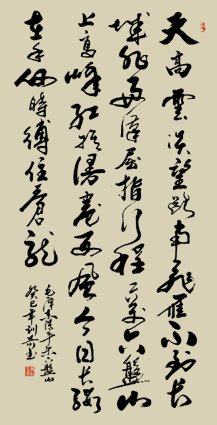 天高雲淡望断南飛雁不到長
城非好漢屈指行程二萬六盤山
上高峰红旗漫卷西風今日长纓
在手何時縛住蒼龍
毛澤東清平乐六盤山
癸巳年刘书